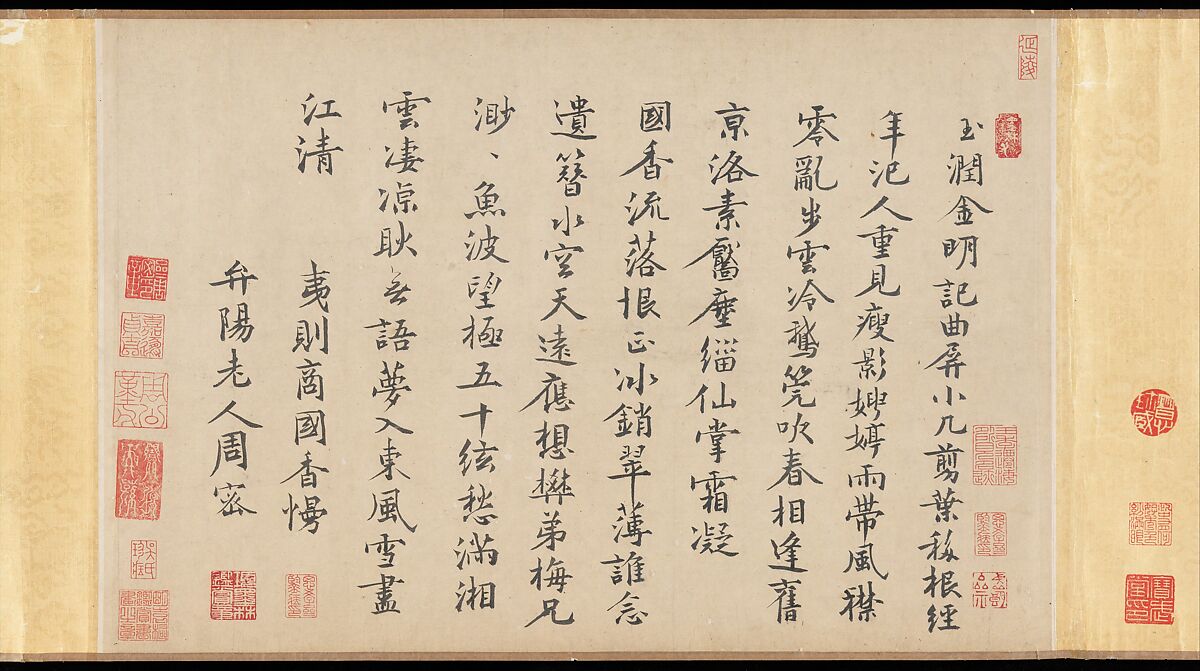 玉潤金明記曲屏小几剪葉移根經
年汜人重見瘦影娉婷雨帶風襟
零亂步雲冷鵝筦吹春相逢舊
京洛素靨塵緇仙掌霜凝
國香流落恨正冰銷翠薄誰念
遺簪水空天遠應想礬弟梅兄
渺、魚波望極五十絃愁滿湘
雲凄涼耿無語夢入東風雪盡
江清
夷則商國香慢
弁陽老人周密